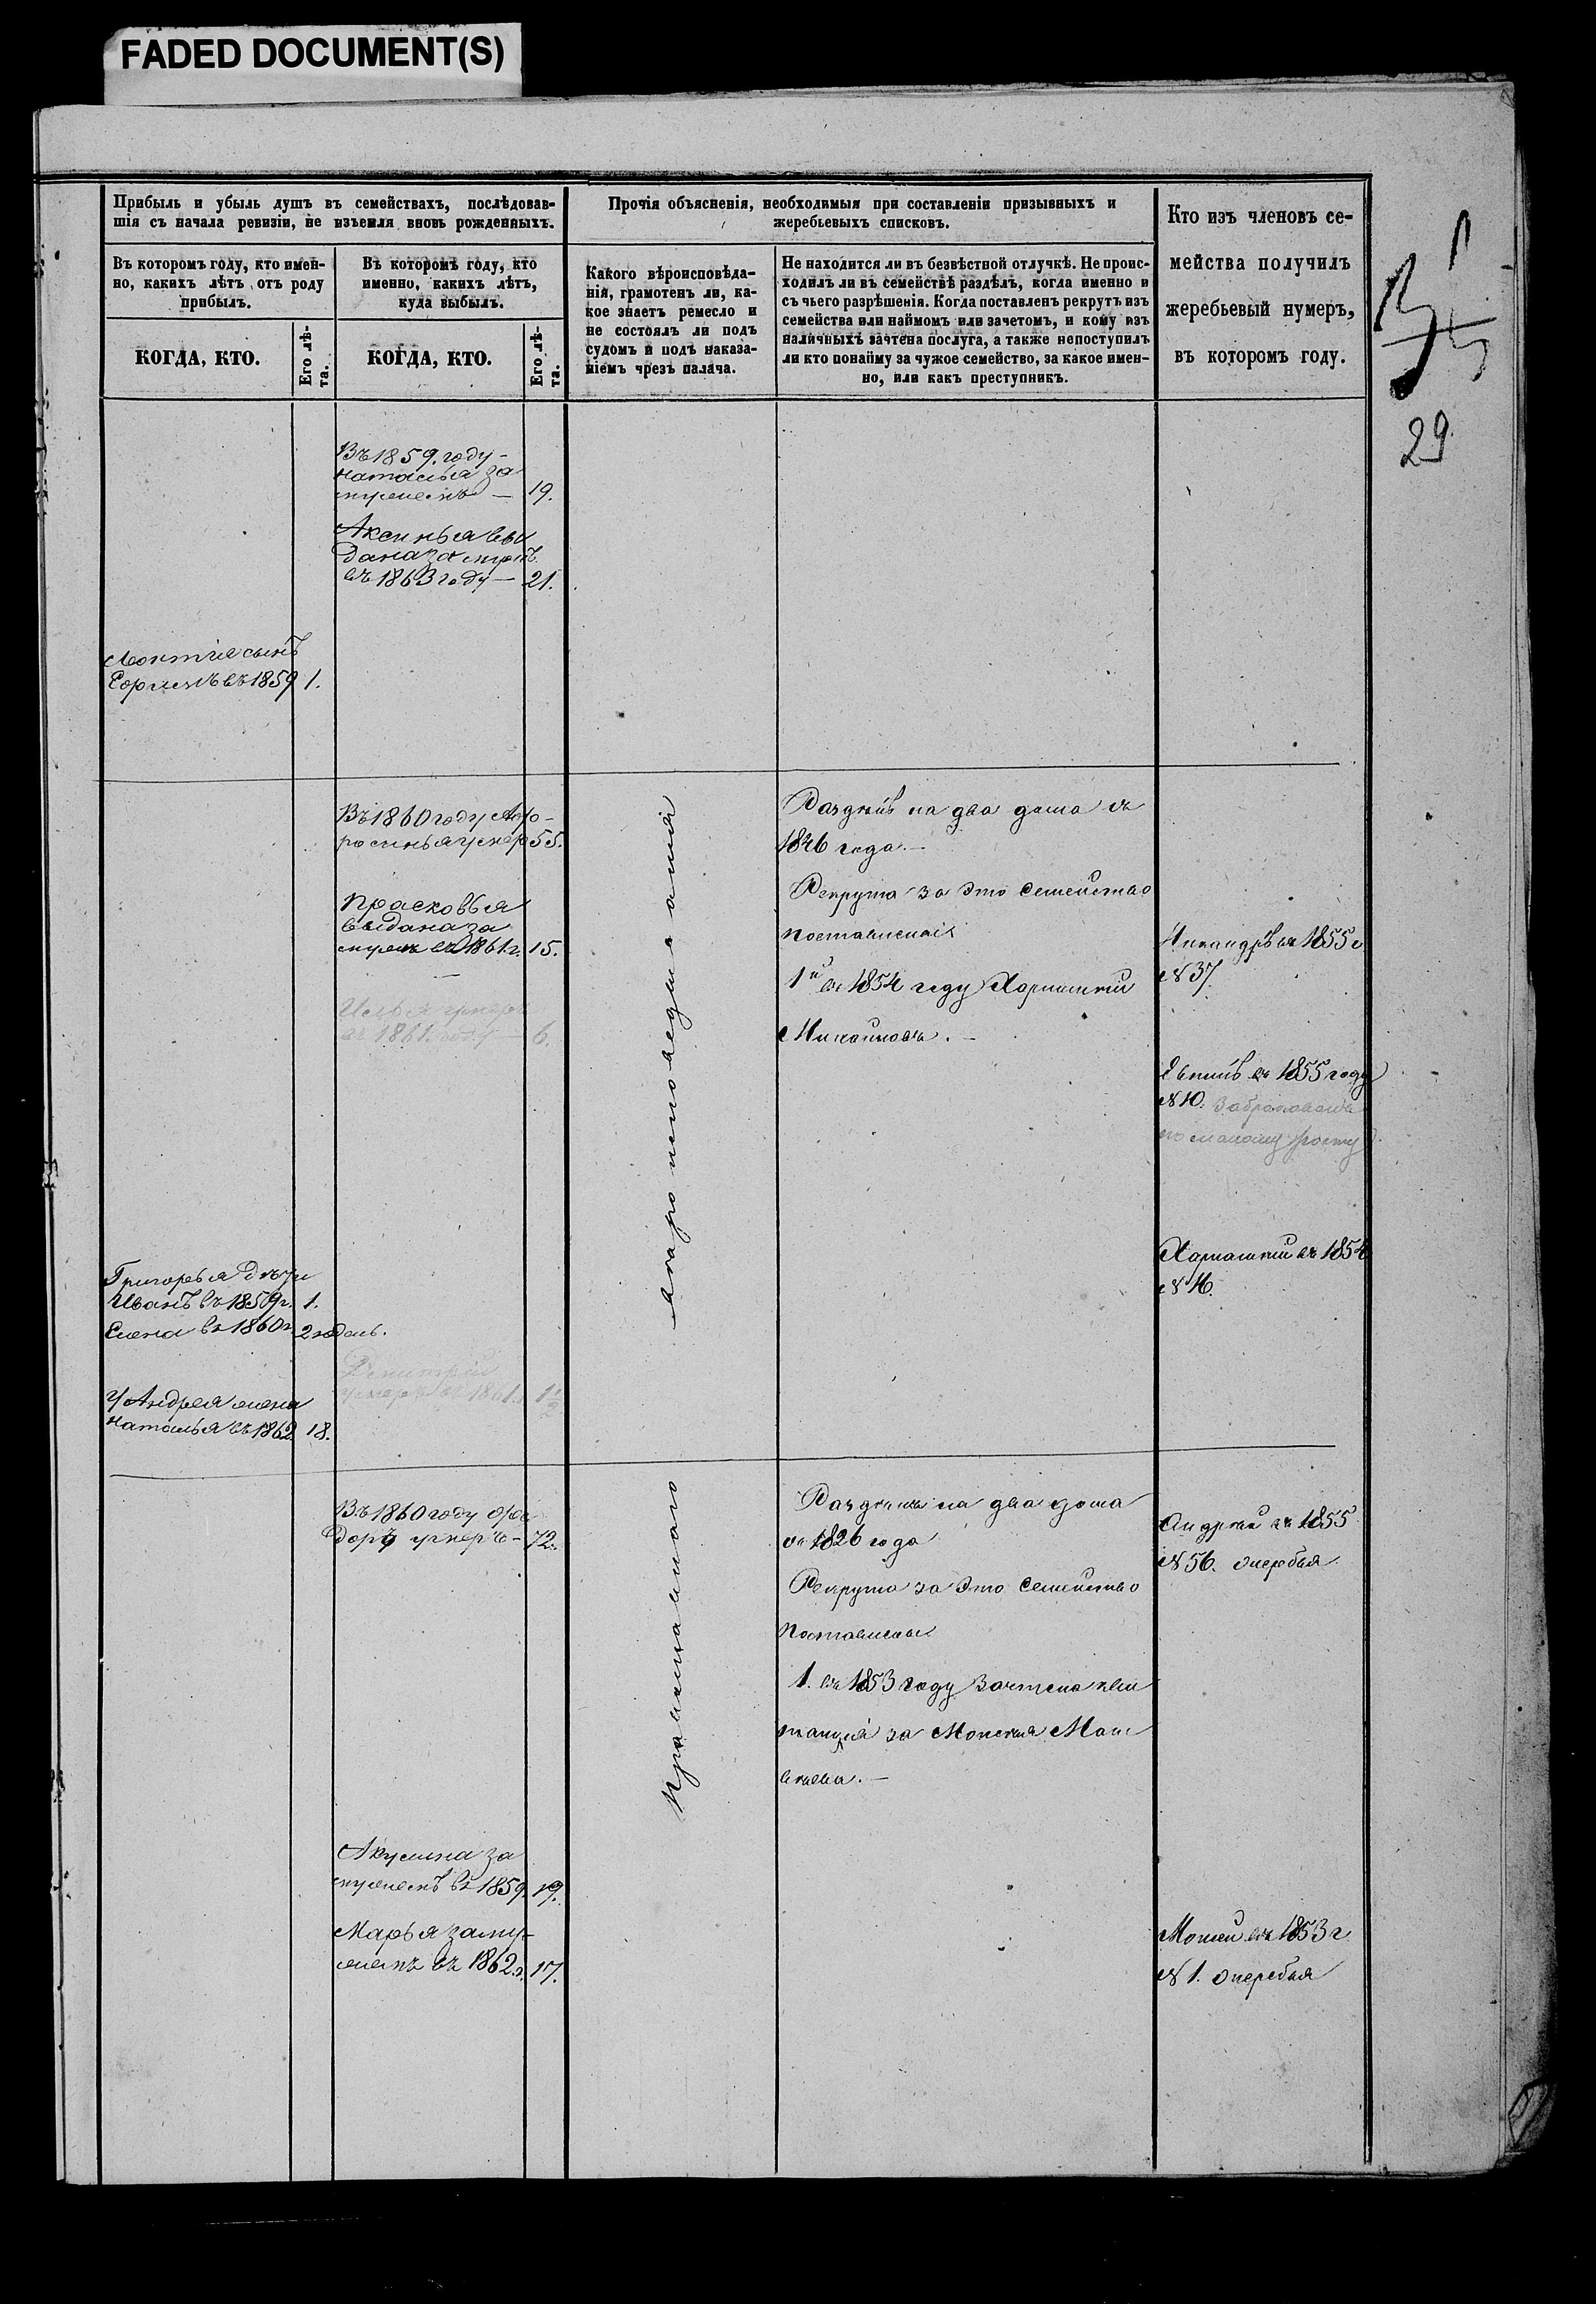 FADED DOCUMENT(S)
Прибыль и убыль душъ въ семействахъ, послѣдовав-
шія съ начала ревизіи, не изъемля вновь рожденныхъ.
Прочія объясненія, необходимыя при составленіи призывныхъ и
жеребьевыхъ списковъ.
Кто изъ членовъ се-
мейства получилъ
жеребьевый нумеръ,
въ которомъ году.
Въ которомъ году, кто имен-
но, какихъ лѣтъ отъ роду
прибылъ.
Въ которомъ году, кто
именно, какихъ лѣтъ,
куда выбылъ.
Какого вѣроисповѣда-
нія, грамотенъ ли, ка-
кое знаетъ ремесло и
не состоялъ ли подъ
судомъ и подъ наказа-
ніемъ чрезъ палача.
Не находится ли въ безвѣстной отлучкѣ. Не проис-
ходилъ ли въ семействѣ раздѣлъ, когда именно и
съ чьего разрѣшенія. Когда поставленъ рекрутъ изъ
семейства или наймомъ или зачетомъ, и кому изъ
наличныхъ зачтена послуга, а также непоступилъ
ли кто понайму за чужое семейство, за какое имен-
но, или какъ преступникъ.
КОГДА, КТО.
Его лѣ-
та.
КОГДА, КТО.
Его лѣ-
та.
29
Въ 1859. году -
наталья за
мужемъ — 19.
Аксинья вы
дана за мужъ
въ 1863 году — 21.
сынъ
въ 1859 1.
Въ 1860 году Афо-
росинья умер 55.
Прасковья
выдана за
мужъ въ 1861 г. 15.
Илья умеръ
въ 1861. году — 6.
Раздѣлъ на два дома съ
1826 года. —
Рекрута за Это Семейство
поставлены
1й въ 1854 году
Никандръ въ 1855 г
№ 37.
въ 1855 году
№ 10. Забракованъ
по малому росту
въ 1854
№ 16.
Григорья дѣти
Иванъ въ 1859 г. 1.
Елена въ 1860 г. 2 недель.
У Андрея жена
наталья въ 1862 18.
Дмитрій
умеръ въ 1861. 1 1/2
Въ 1860 году Фео
доръ умеръ - 72.
Православнаго
Раздѣлъ на два дома
съ 1826 года
Рекрута за Это Семейство
Поставлены
1. въ 1853 году Зачтена кви
танція за Моисея Мат
веева. —
Андрей въ 1855
№ 56. жеребья
Акулина за
мужемъ въ 1859. 19.
Марья заму-
жемъ въ 1862 г. 17.
Моисей въ 1853 г
№ 1. жеребья